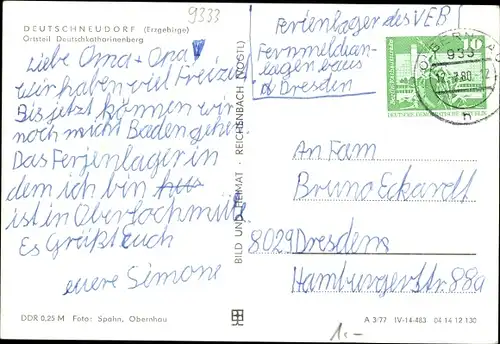 9333
DEUTSCHNEUDORF (Erzgebirge)
Ortsteil Deutschkatharinenberg
Liebe Oma + Opa!
wir haben viel Freizeit
Bis jetzt können wir
noch nicht Baden gehen
Das Ferjenlager in
dem ich bin
ist in Oberlochmühle
Es Grüßt Euch
eure Simone
DDR 0,25 M Foto: Spahn, Obernhau
BILD UND HEIMAT · REICHENBACH (VOGTL)
Ferienlager des VEB
Fernmeldean-
lagenbaus
Dresden
10
933
80
h
DEUTSCHE DEMOKRATISCHE REPUBLIK
An Fam
Bruno Eckardt
8029 Dresden
Hamburgerstr 88a
1.-
A 3/77 IV-14-483 04 14 12 130